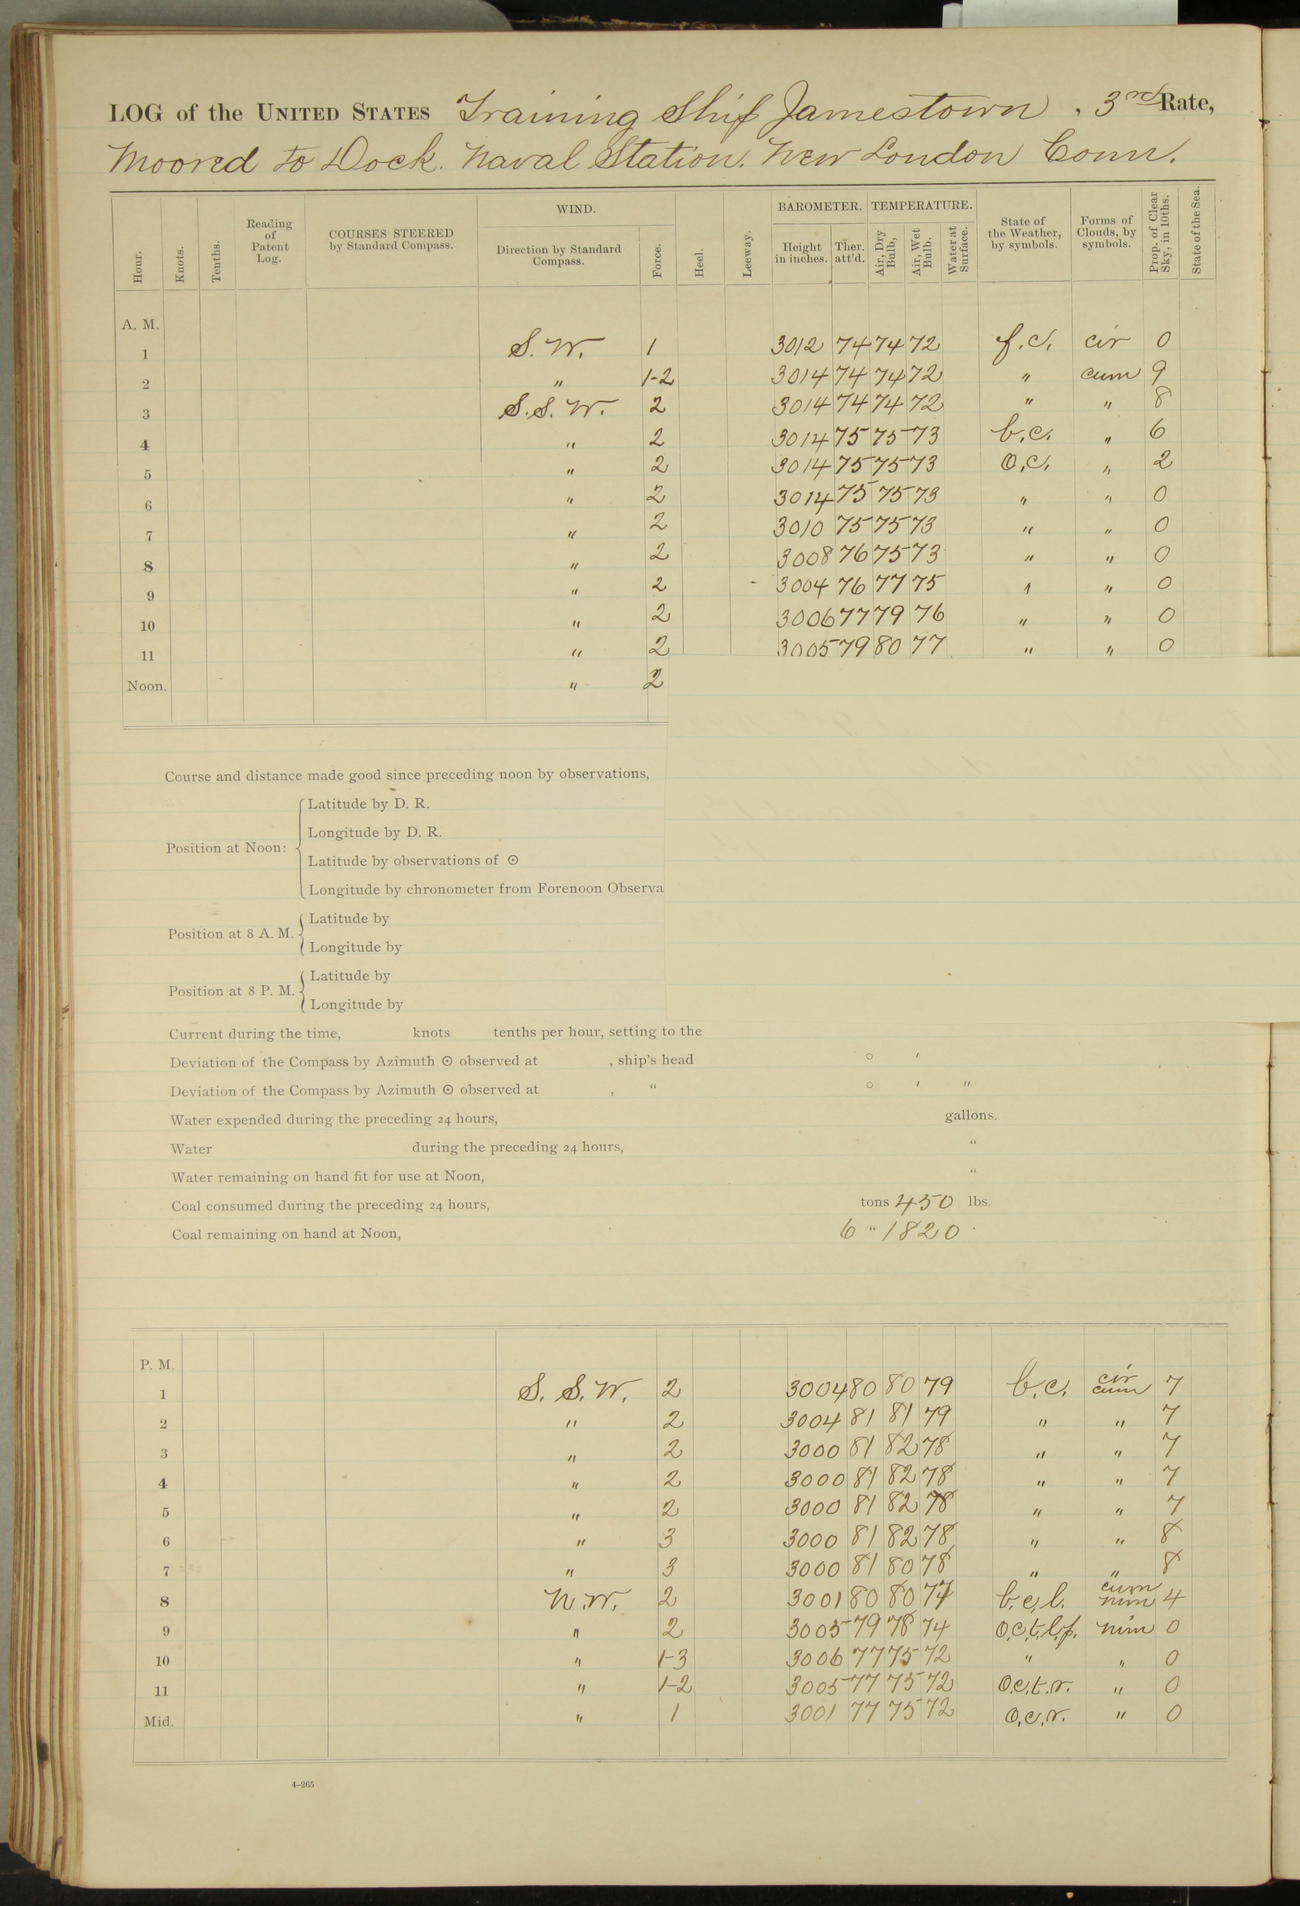 LOG of the UNITED STATES Training Ship Jamestown, 3rd Rate,
Moored to Dock. Naval Station. New London Conn.
Hour. Knots. Tenths. Reading of Patent Log. COURSES STEERED by Standard Compass. WIND. Direction by Standard Compass. Force. Heel. Leeway. BAROMETER. Height in inches. Ther. att'd. TEMPERATURE. Air, Dry Bulb, Air, Wet Bulb. Water at Surface. State of the Weather, by symbols. Forms of Clouds, by symbols. Prop. of Clear Sky, in 10ths. State of the Sea.
A. M.
1 S. W. 1 3012 74 74 72 f.c. cir 0
2 " 1-2 3014 74 74 72 " cum 9
3 S.S. W. 2 3014 74 74 72 " " 8
4 " 2 3014 75 75 73 b.c. " 6
5 " 2 3014 75 75 73 o.c. " 2
6 " 2 3014 75 75 73 " " 0
7 " 2 3010 75 75 73 " " 0
8 " 2 3008 76 75 73 " " 0
9 " 2 3004 76 77 75 " " 0
10 " 2 3006 77 79 76 " " 0
11 " 2 3005 79 80 77 " " 0
Noon. " 2
Course and distance made good since preceding noon by observations,
Position at Noon:
Latitude by D. R.
Longitude by D. R.
Latitude by observations of ⊙
Longitude by chronometer from Forenoon Observa
Position at 8 A. M.
Latitude by
Longitude by
Position at 8 P. M.
Latitude by
Longitude by
Current during the time, knots tenths per hour, setting to the
Deviation of the Compass by Azimuth ⊙ observed at , ship's head ° ′
Deviation of the Compass by Azimuth ⊙ observed at , “ ° ′ ″
Water expended during the preceding 24 hours, gallons.
Water during the preceding 24 hours, “
Water remaining on hand fit for use at Noon, “
Coal consumed during the preceding 24 hours, tons 450 lbs.
Coal remaining on hand at Noon, 6 “ 1820
P. M.
1 S. S. W. 2 3004 80 80 79 b.c. cir cum 7
2 " 2 3004 81 81 79 " " 7
3 " 2 3000 81 82 78 " " 7
4 " 2 3000 81 82 78 " " 7
5 " 2 3000 81 82 78 " " 7
6 " 3 3000 81 82 78 " " 8
7 " 3 3000 81 80 78 " " 8
8 N.W. 2 3001 80 80 77 b.c.l. cum nim 4
9 " 2 3005 79 78 74 o.c.t.l.p. nim 0
10 " 1-3 3006 77 75 72 " " 0
11 " 1-2 3005 77 75 72 o.c.t.r. " 0
Mid. " 1 3001 77 75 72 o.c.r. " 0
4-265